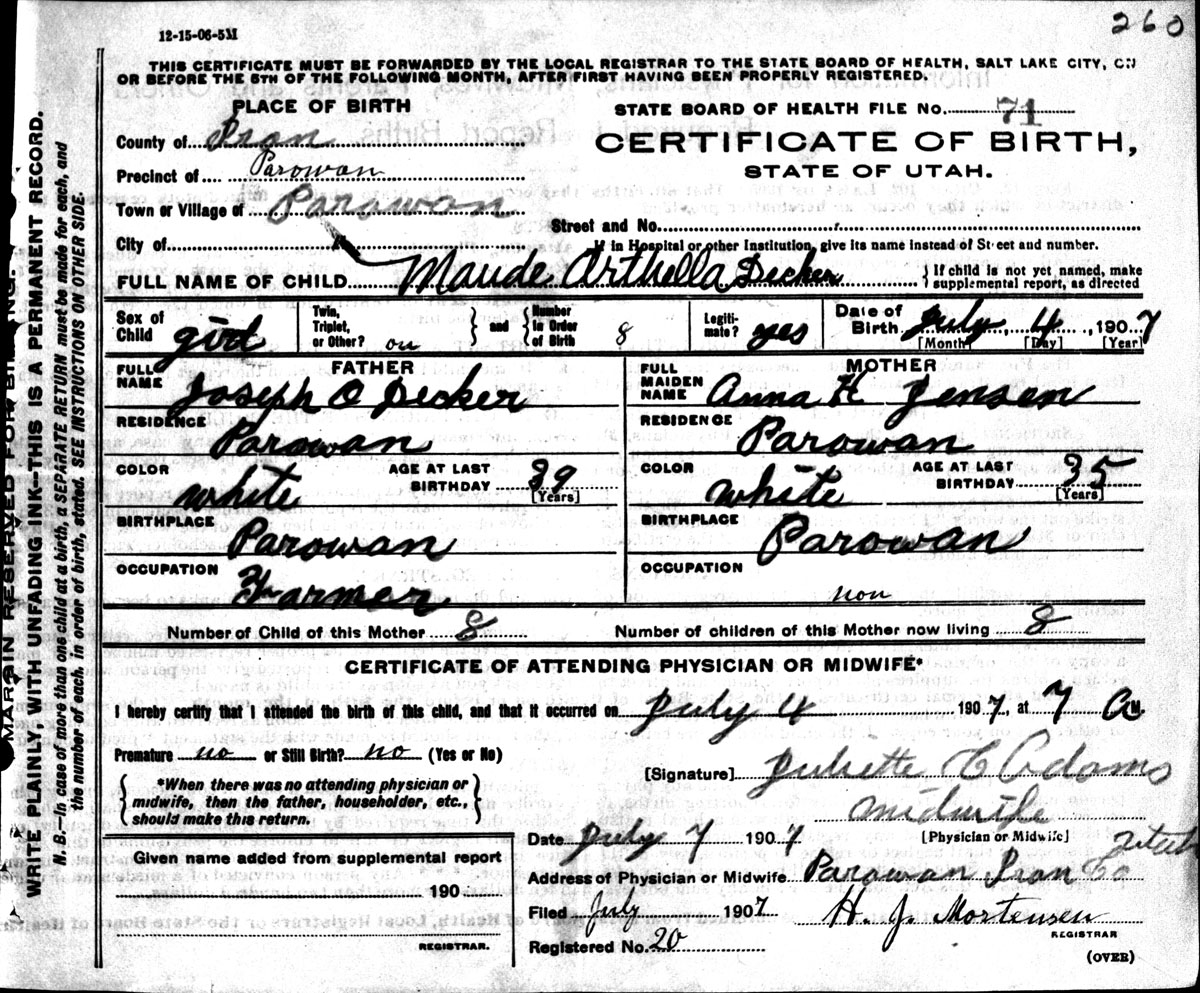 260
12-15-06-5M
THIS CERTIFICATE MUST BE FORWARDED BY THE LOCAL REGISTRAR TO THE STATE BOARD OF HEALTH, SALT LAKE CITY, ON
OR BEFORE THE 5TH OF THE FOLLOWING MONTH, AFTER FIRST HAVING BEEN PROPERLY REGISTERED.
PLACE OF BIRTH
STATE BOARD OF HEALTH FILE NO. 71
County of Iron
CERTIFICATE OF BIRTH,
Precinct of Parowan
STATE OF UTAH.
Town or Village of Parowan
Street and No.
City of
If in Hospital or other Institution, give its name instead of Street and number.
FULL NAME OF CHILD Maude Arthella Decker
} If child is not yet named, make
supplemental report, as directed
Sex of Child girl
Twin, Triplet, or Other? on } and { Number in Order of Birth 8
Legitimate? yes
Date of Birth July 4, 1907
[Month] [Day] [Year]
FATHER
FULL NAME Joseph O Decker
RESIDENCE Parowan
COLOR white AGE AT LAST BIRTHDAY 39
[Years]
BIRTHPLACE Parowan
OCCUPATION Farmer
MOTHER
FULL MAIDEN NAME Anna K Jensen
RESIDENCE Parowan
COLOR white AGE AT LAST BIRTHDAY 35
[Years]
BIRTHPLACE Parowan
OCCUPATION non
Number of Child of this Mother 8 Number of children of this Mother now living 8
CERTIFICATE OF ATTENDING PHYSICIAN OR MIDWIFE*
I hereby certify that I attended the birth of this child, and that it occurred on July 4 1907, at 7 A M.
Premature no or Still Birth? no (Yes or No)
{ *When there was no attending physician or
midwife, then the father, householder, etc.,
should make this return. }
[Signature] Juliette C Adams
midwife
[Physician or Midwife]
Date July 7 1907
Given name added from supplemental report
190
REGISTRAR.
Address of Physician or Midwife Parowan Iron Co Utah
Filed July 1907 H. J. Mortensen
REGISTRAR
Registered No. 20
(OVER)
MARGIN RESERVED FOR BINDING.
WRITE PLAINLY, WITH UNFADING INK—THIS IS A PERMANENT RECORD.
N. B.—In case of more than one child at a birth, a SEPARATE RETURN must be made for each, and
the number of each, in order of birth, stated. SEE INSTRUCTIONS ON OTHER SIDE.